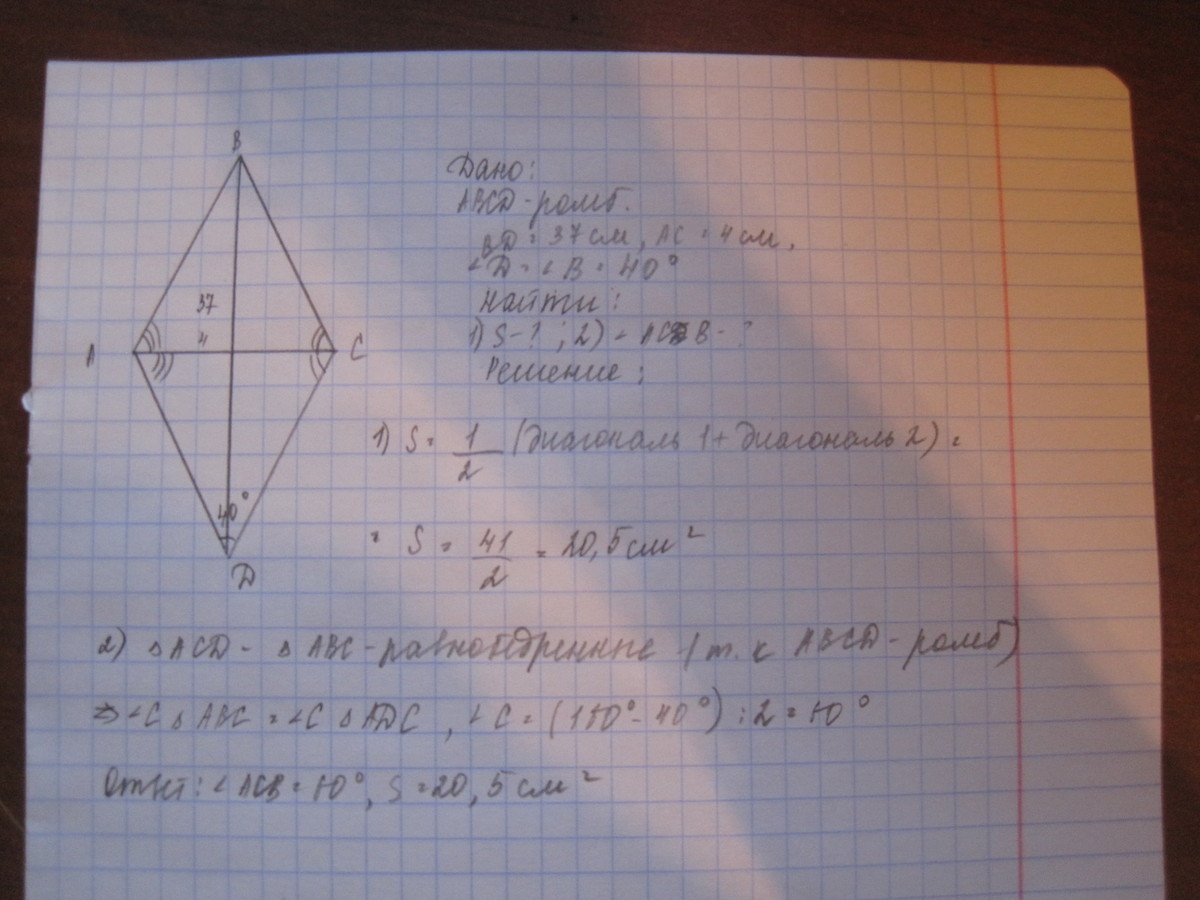 B
Дано:
ABCD - ромб.
BD = 37 см, AC = 4 см,
∠D = ∠B = 40°
37
Найти:
4
1) S - ? ; 2) ∠ ACB - ?
A
C
Решение:
1) S = 1/2 (диагональ 1 + диагональ 2) =
40°
= S = 41/2 = 20,5 см²
D
2) △ ACD - △ ABC - равнобедренные (т.к ABCD - ромб)
⇒ ∠C △ ABC = ∠C △ ADC, ∠C = (180° - 40°) : 2 =
Ответ: ∠ ACB = S = 20,5 см²